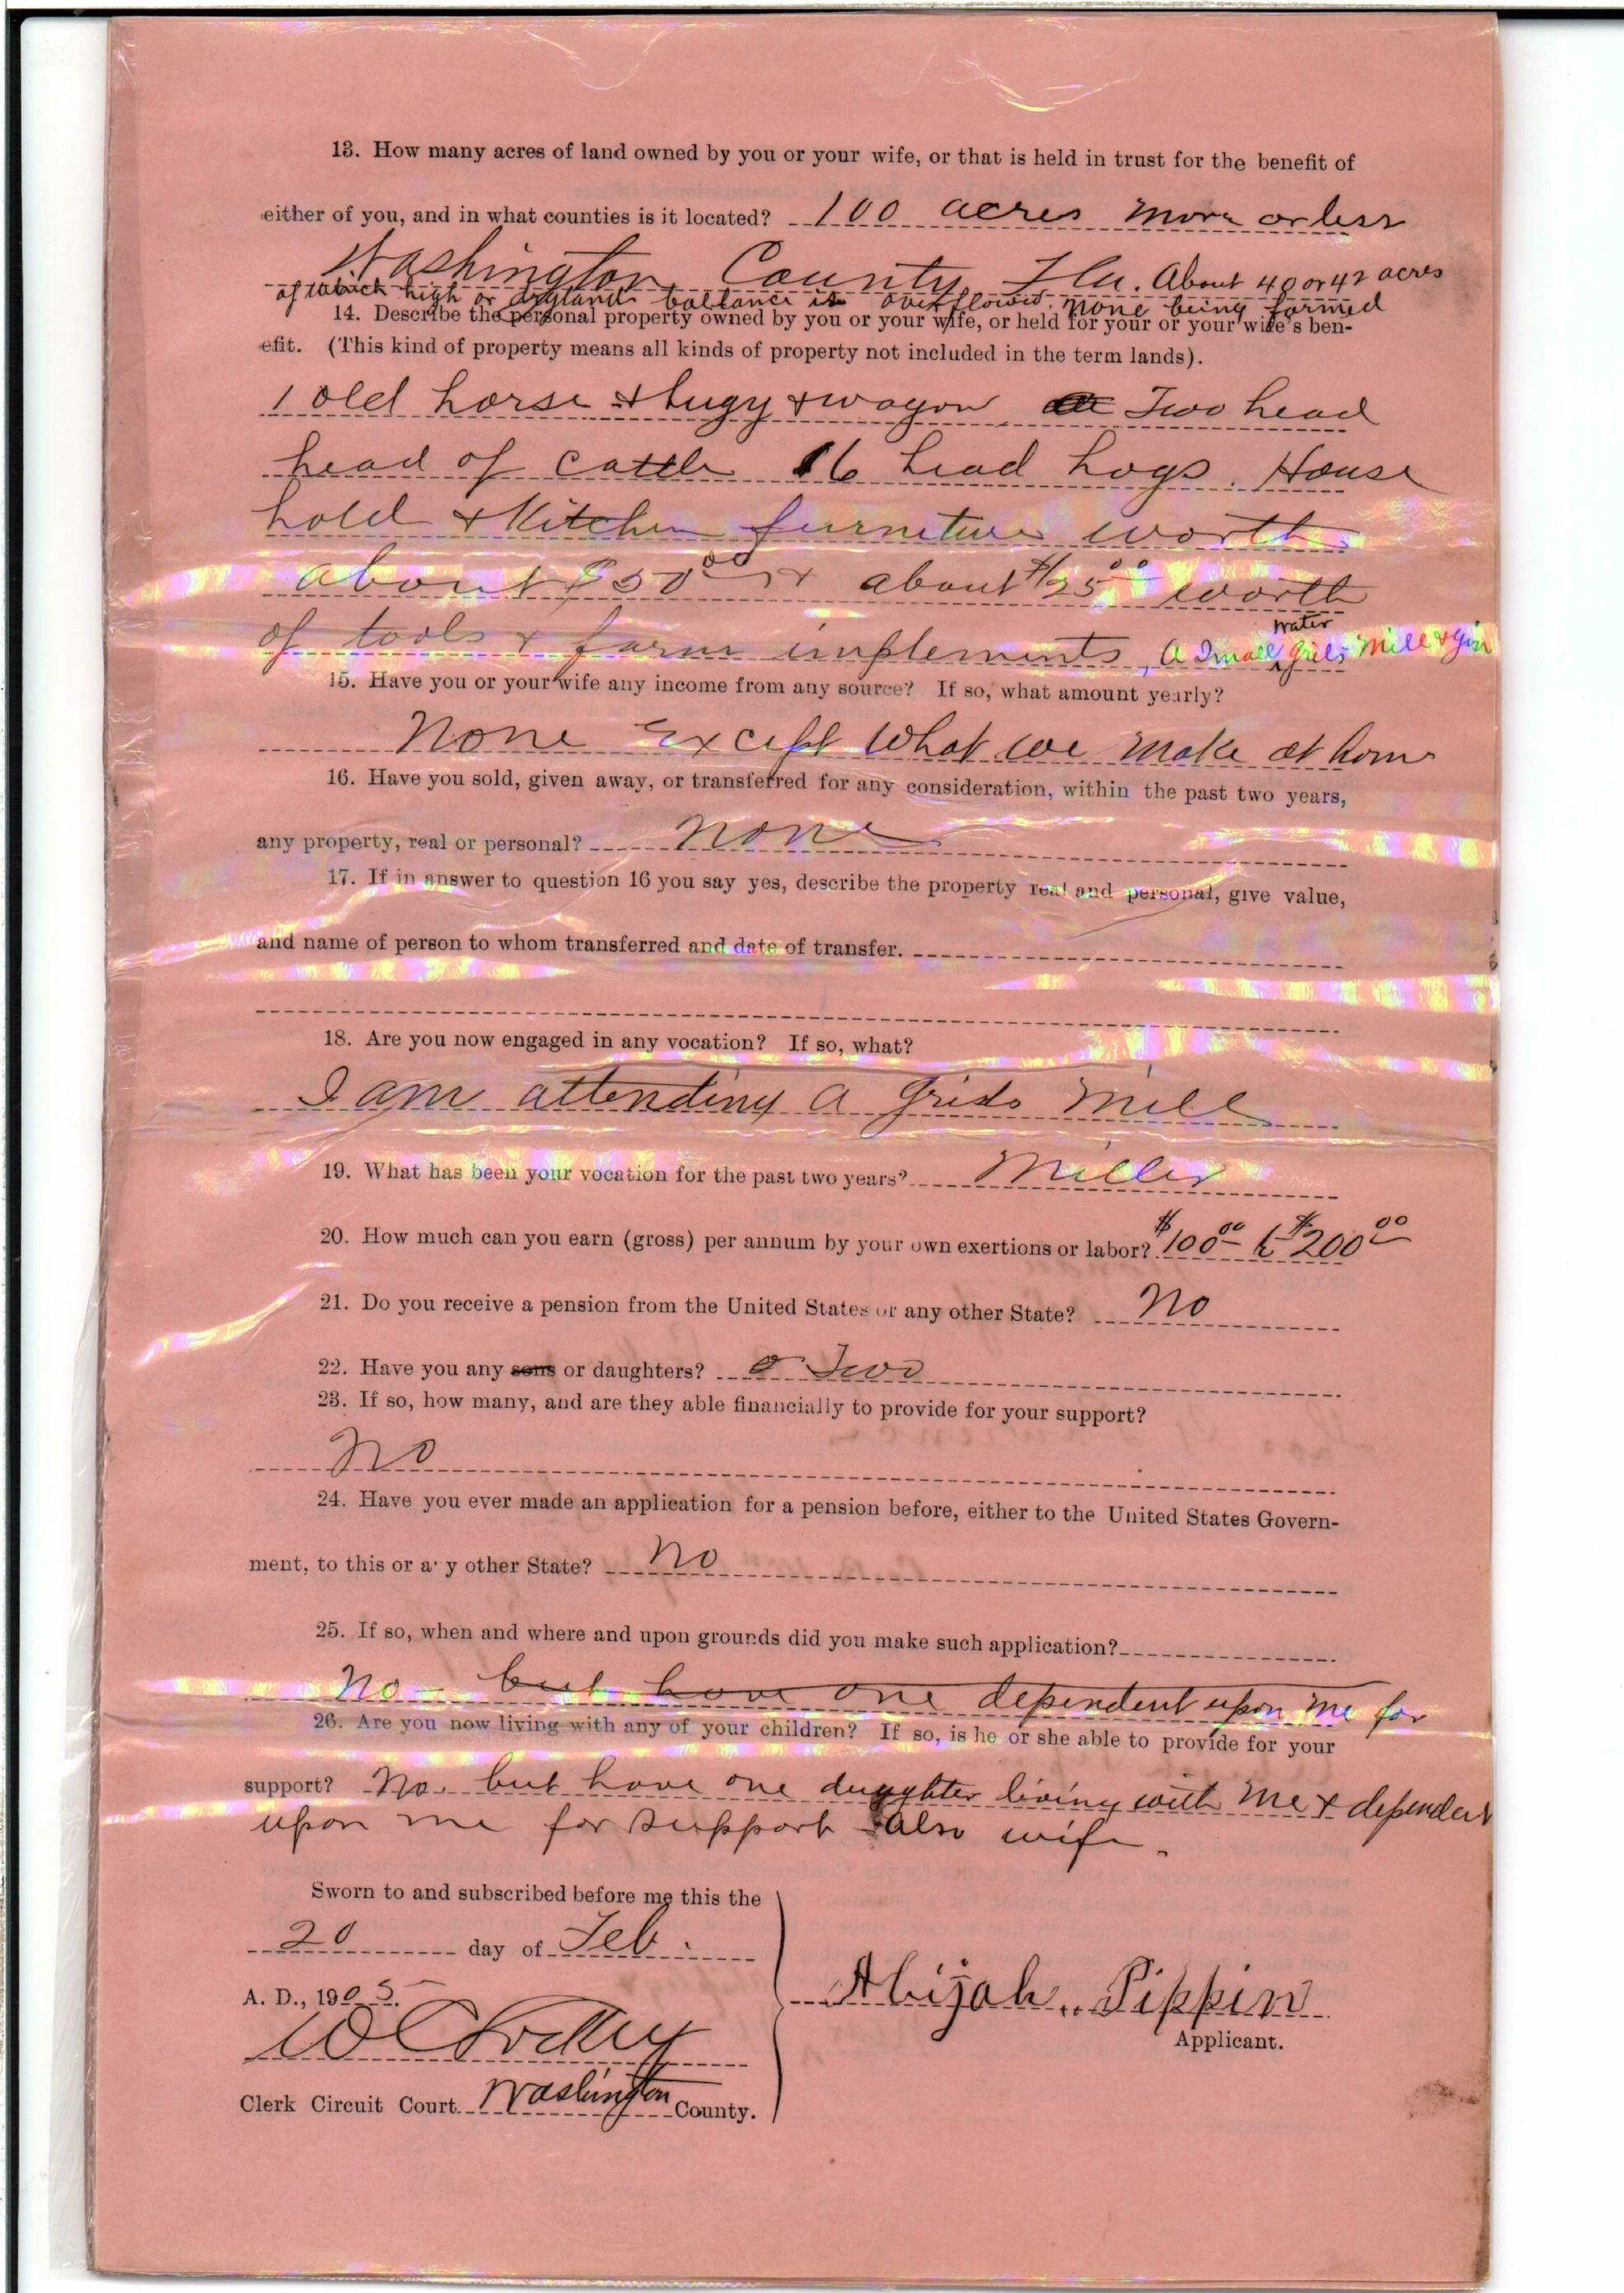 13. How many acres of land owned by you or your wife, or that is held in trust for the benefit of
either of you, and in what counties is it located? 100 acres more or less
Washington County, Fla. About 40 or 42 acres
of which high or dryland ballance is overflowed. None being farmed
14. Describe the personal property owned by you or your wife, or held for your or your wife's ben-
efit. (This kind of property means all kinds of property not included in the term lands).
1 old horse & bugy & wagon Two head
head of cattle 16 head hogs. House
hold & Kitchen furniture worth
about $50 00 & about $25 00 worth
water
of tools & farm implements, A Small Mill & Gin
15. Have you or your wife any income from any source? If so, what amount yearly?
None Except what we make at home
16. Have you sold, given away, or transferred for any consideration, within the past two years,
any property, real or personal? None
17. If in answer to question 16 you say yes, describe the property real and personal, give value,
and name of person to whom transferred and date of transfer.
18. Are you now engaged in any vocation? If so, what?
I am attending a Grids Mill
19. What has been your vocation for the past two years? Miller
20. How much can you earn (gross) per annum by your own exertions or labor? $100 00 to $200 00
21. Do you receive a pension from the United States or any other State? No
22. Have you any sons or daughters? Two
23. If so, how many, and are they able financially to provide for your support?
No
24. Have you ever made an application for a pension before, either to the United States Govern-
ment, to this or a y other State? No
25. If so, when and where and upon grounds did you make such application?
No but have one dependent upon me for
26. Are you now living with any of your children? If so, is he or she able to provide for your
support? No. but have one dughter living with me & dependent
upon me for support also wife.
Sworn to and subscribed before me this the
20 day of Feb.
A. D., 1905.
Abijah Pippin
Applicant.
Clerk Circuit Court Washington County.